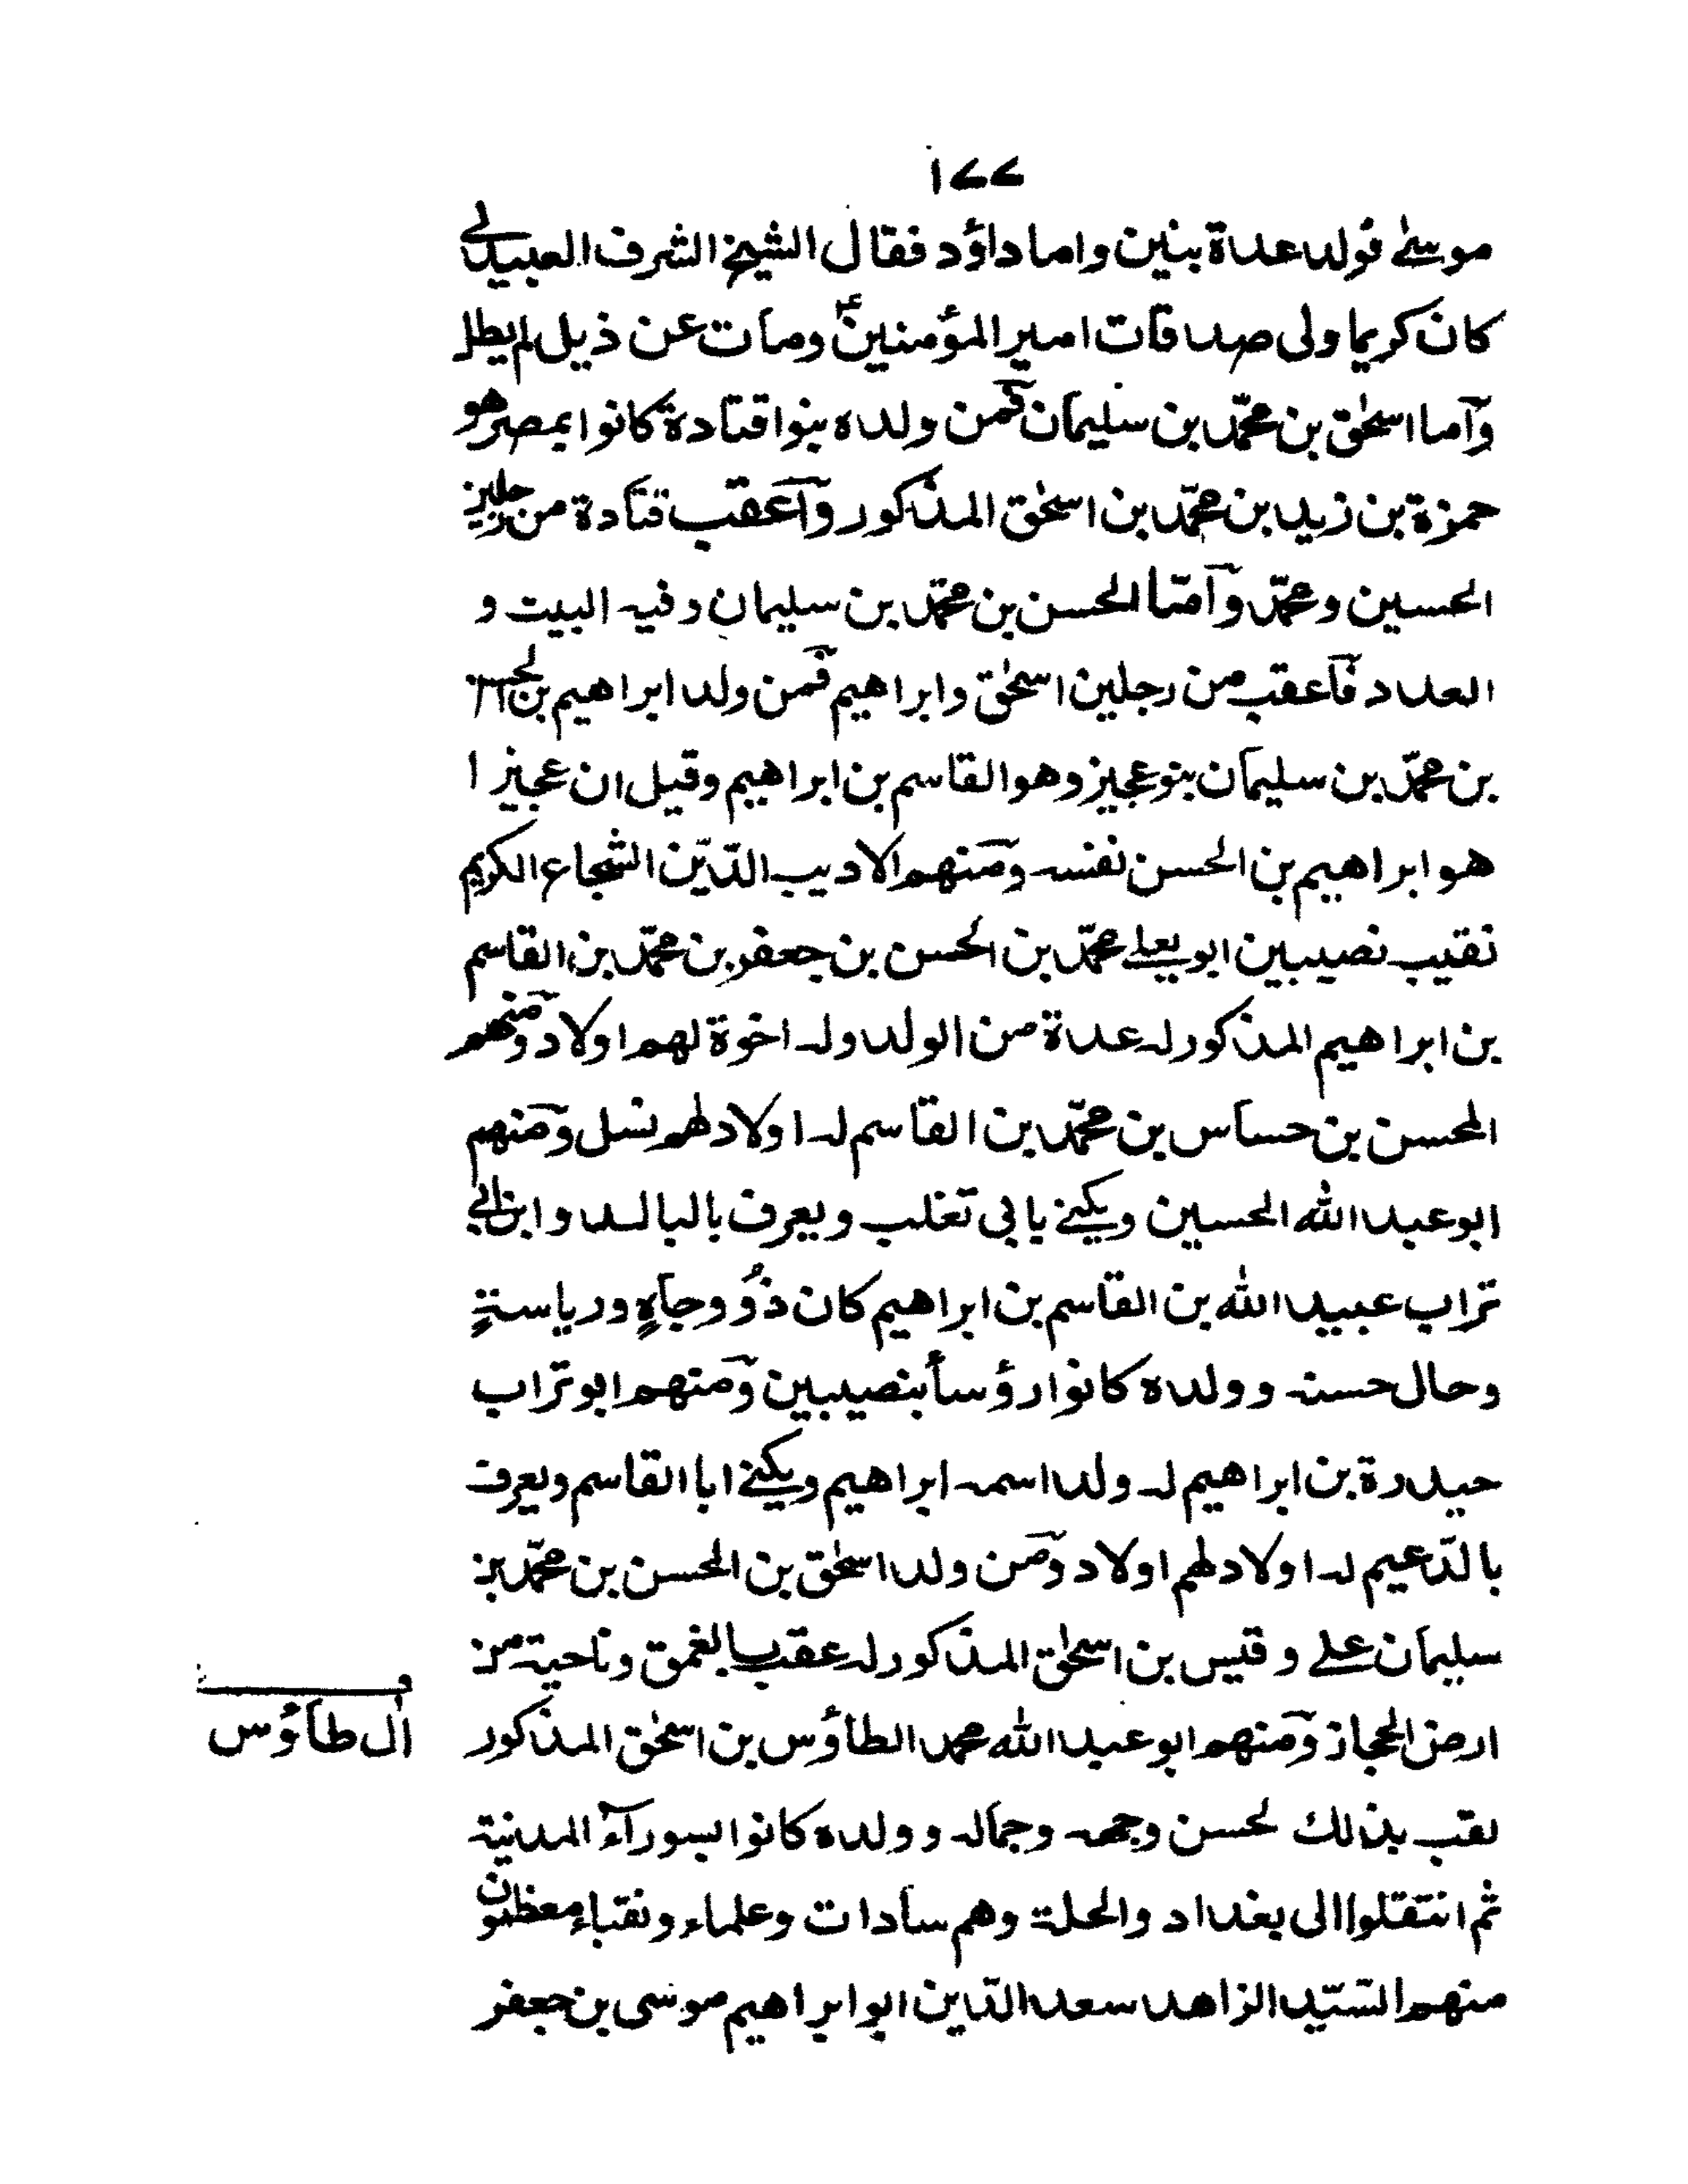 ١٧٧
موسىٰ فولد عدة بنين واما داؤد فقال الشيخ الشرف العبيدلي
كان كريما ولى صدقات امير المؤمنينؑ ومات عن ذيل لم يطل
وآما اسحٰق بن محمّد بن سليمان فمن ولده بنوا قتادة كانوا بمصر هو
حمزة بن زيد بن محمّد بن اسحٰق المذكور وآعقب قتادة من رجلين
الحسين ومحمّد وآمّا الحسن بن محمّد بن سليمان وفيه البيت و
العدد فآعقب من رجلين اسحٰق وابراهيم فمن ولد ابراهيم بن الحسن
بن محمّد بن سليمان بنو عجيز وهو القاسم بن ابراهيم وقيل ان عجيزا
هو ابراهيم بن الحسن نفسه ومنهم الاديب الدّيّن الشجاع الكريم
نقيب نصيبين ابو يعلے محمّد بن الحسن بن جعفر بن محمّد بن القاسم
بن ابراهيم المذكور له عدة من الولد وله اخوة لهم اولاد ومنهم
المحسن بن حساس بن محمّد بن القاسم له اولاد لهم نسل ومنهم
ابو عبد الله الحسين ويكنے بابى تغلب ويعرف بالبالسد وابن ابي
تراب عبيد الله بن القاسم بن ابراهيم كان ذوُ وجاهٍ ورياسةٍ
وحال حسنه وولده كانوا رؤسأ بنصيبين ومنهم ابو تراب
حيدرة بن ابراهيم له ولد اسمه ابراهيم ويكنے ابا القاسم ويعرف
بالدّعيم له اولاد لهم اولاد ومن ولد اسحٰق بن الحسن بن محمّد بن
سليمان علے وقيس بن اسحٰق المذكور له عقب بالغمق وناحية من
ارض الحجاز ومنهم ابو عبد الله محمد الطاؤس بن اسحٰق المذكور
لقب بذالك لحسن وجهه وجماله وولده كانوا بسورآء المدنية
ثم انتقلوا الى بغداد والحلة وهم سادات وعلماء ونقباء معظمون
منهم السّيّد الزاهد سعد الدّين ابو ابراهيم موسى بن جعفر
اٰل طاؤس